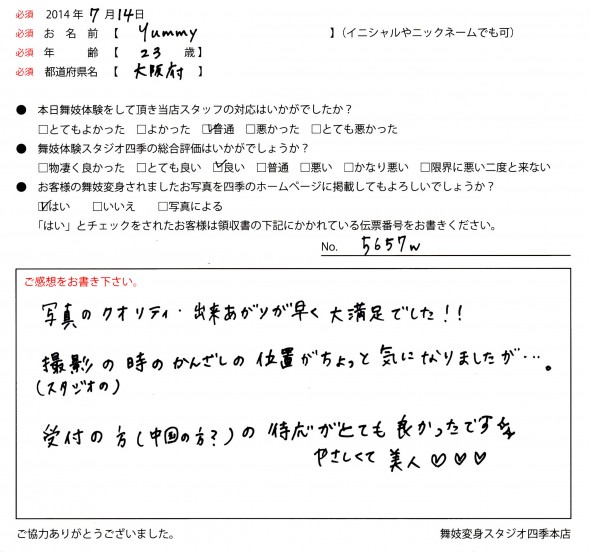 必須 2014 年 7 月 14 日
必須 お 名 前 【 Yummy 】(イニシャルやニックネームでも可)
必須 年 齢 【 23 歳】
必須 都道府県名 【 大阪府 】
● 本日舞妓体験をして頂き当店スタッフの対応はいかがでしたか？
□とてもよかった □よかった ☑普通 □悪かった □とても悪かった
● 舞妓体験スタジオ四季の総合評価はいかがでしょうか？
□物凄く良かった □とても良い ☑良い □普通 □悪い □かなり悪い □限界に悪い二度と来ない
● お客様の舞妓変身されましたお写真を四季のホームページに掲載してもよろしいでしょうか？
☑はい □いいえ □写真による
「はい」とチェックをされたお客様は領収書の下記にかかれている伝票番号をお書きください。
No. 5657w
ご感想をお書き下さい。
写真のクオリティ・出来あがりが早く大満足でした!!
撮影の時のかんざしの位置がちょっと気になりましたが…。
(スタジオの)
受付の方(中国の方?)の対応がとても良かったです
やさしくて美人♡♡♡
ご協力ありがとうございました。 舞妓変身スタジオ四季本店